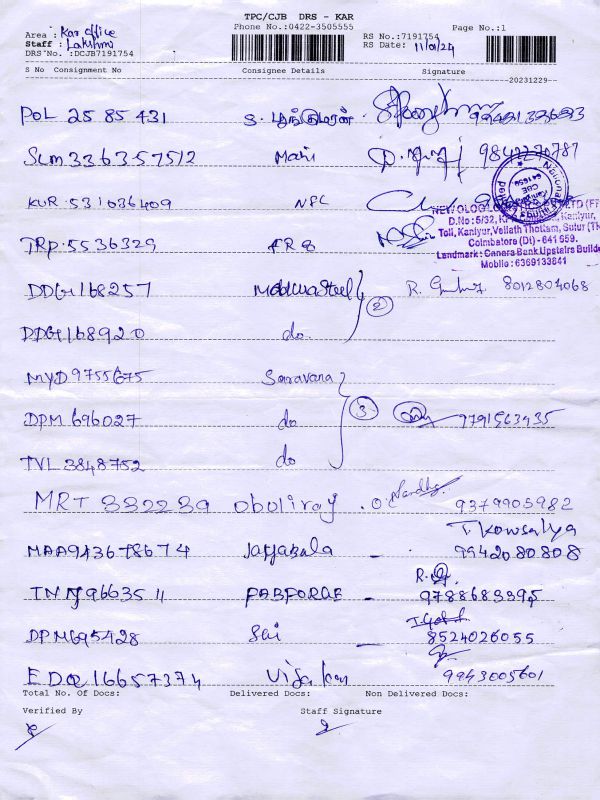 TPC/CJB DRS - KAR
Phone No.:0422-3505555
Area : Kar office
Staff : Lakshmi
DRS No. :DCJB7191754
RS No.:7191754
RS Date: 11/01/24
Page No.:1
S No Consignment No Consignee Details Signature
20231229
POL 2585431
SLM 336357512 Mani 9842270787
KUR 531036409 NPC
TRP 5536329
NEW OLOGY
D.No: 5/32, Kaniyur,
Toll, Kaniyur, Vellath Thottam, Sulur (TK)
Coimbatore (Dt) - 641 659.
Landmark: Canera Bank Upstairs Building
Moblie: 6369133841
DDG 168257 Mobiwa Steel 2 8012804068
DDG 168920 do
MYD 9755675 Saravana
DPM 696027 do 3 9791563435
TVL 3848752 do
MRT 332239 oboliraj 9379905982
MAA943678674 Jayabala - T. Kowsalya 9942080808
9663511 - 9788683395
DPM695428 Sai 8524026055
EDQ16657374 Vijakan 9943005601
Total No. Of Docs: Delivered Docs: Non Delivered Docs:
Verified By Staff Signature